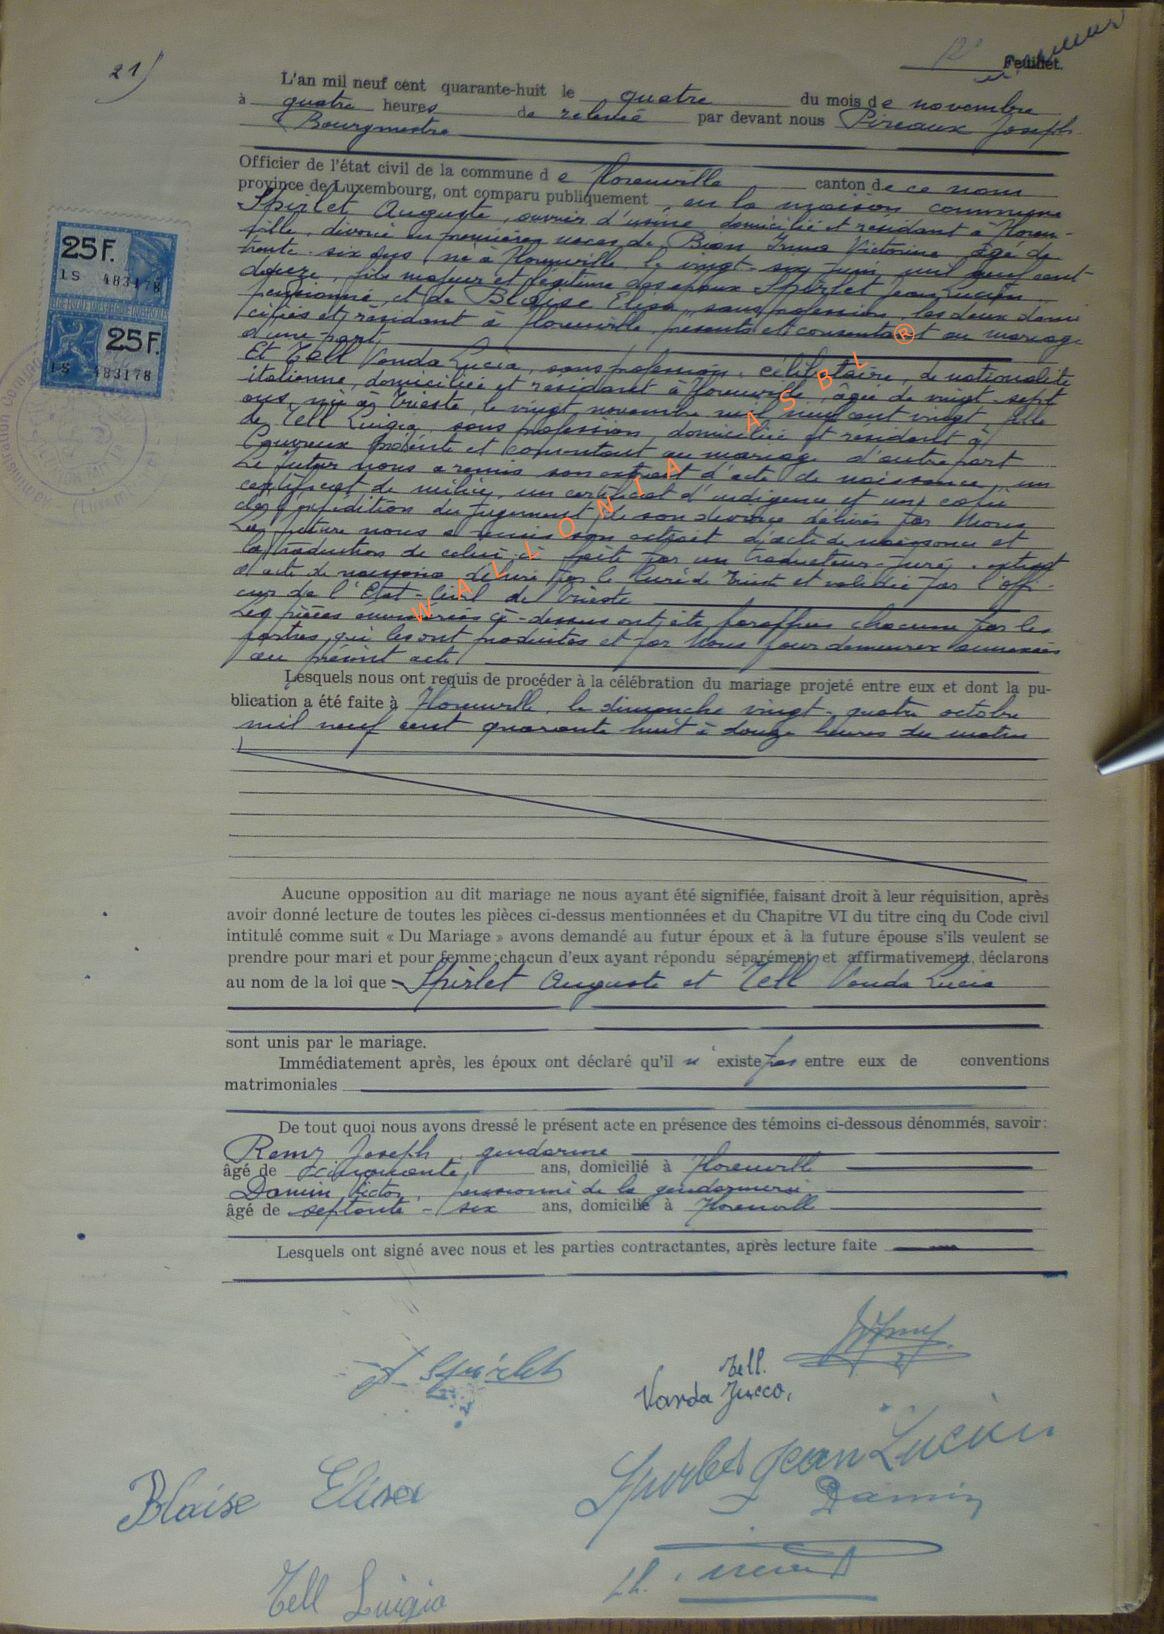 21)
12e Feuillet.
L'an mil neuf cent quarante-huit le quatre du mois de novembre
à quatre heures de relevée par devant nous Pireaux Joseph
Bourgmestre
Officier de l'état civil de la commune de Florenville canton de ce nom
province de Luxembourg, ont comparu publiquement en la maison communale
Spirlet Auguste, ouvrier d'usine domicilié et résidant à Floren-
ville, divorcé en premières noces de Bion Irma Victorine, âgé de
trente-six ans né à Florenville le vingt-six juin mil neuf cent
douze, fils majeur et légitime des époux Spirlet Jean Lucien
pensionné, et de Blaise Elisa, sans profession, les deux domi
ciliés et résidant à Florenville présents et consentant au mariage
d'une part,
Et Tell Vanda Lucia, sans profession, célibataire, de nationalité
italienne, domiciliée et résidant à Florenville, âgée de vingt-sept
ans, née à Trieste, le vingt novembre mil neuf cent vingt, fille
de Tell Luigia, sans profession, domiciliée et résidant à
présente et consentant au mariage d'autre part
Le futur nous a remis son extrait d'acte de naissance, un
certificat de milice, un certificat d'indigence et une copie
de l'expédition du jugement de son divorce délivrés par Nous
La future nous a remis son extrait d'acte de naissance et
la traduction de celui-ci faite par un traducteur-juré, extrait
d'acte de naissance délivré par le Curé de Trieste et validée par l'offi-
cier de l'Etat-Civil de Trieste
Les pièces énumérées ci-dessus ont été paraphées chacune par les
parties qui les ont produites et par Nous pour demeurer annexées
au présent acte
Lesquels nous ont requis de procéder à la célébration du mariage projeté entre eux et dont la pu-
blication a été faite à Florenville, le dimanche vingt-quatre octobre
mil neuf cent quarante huit à douze heures du matin
Aucune opposition au dit mariage ne nous ayant été signifiée, faisant droit à leur réquisition, après
avoir donné lecture de toutes les pièces ci-dessus mentionnées et du Chapitre VI du titre cinq du Code civil
intitulé comme suit « Du Mariage » avons demandé au futur époux et à la future épouse s'ils veulent se
prendre pour mari et pour femme; chacun d'eux ayant répondu séparément et affirmativement, déclarons
au nom de la loi que Spirlet Auguste et Tell Vanda Lucia
sont unis par le mariage.
Immédiatement après, les époux ont déclaré qu'il n'existe pas entre eux de conventions
matrimoniales
De tout quoi nous avons dressé le présent acte en présence des témoins ci-dessous dénommés, savoir:
Remy Joseph, gendarme
âgé de cinquante ans, domicilié à Florenville
Damin Victor, pensionné de la gendarmerie
âgé de septante-six ans, domicilié à Florenville
Lesquels ont signé avec nous et les parties contractantes, après lecture faite
A Spirlet
Tell.
Vanda Lucia
Spirlet Jean Lucien
Blaise Elisa
Damin
Tell Luigia
25F.
1S 483178
25F.
1S 483178
WALLONIA ASBL ®